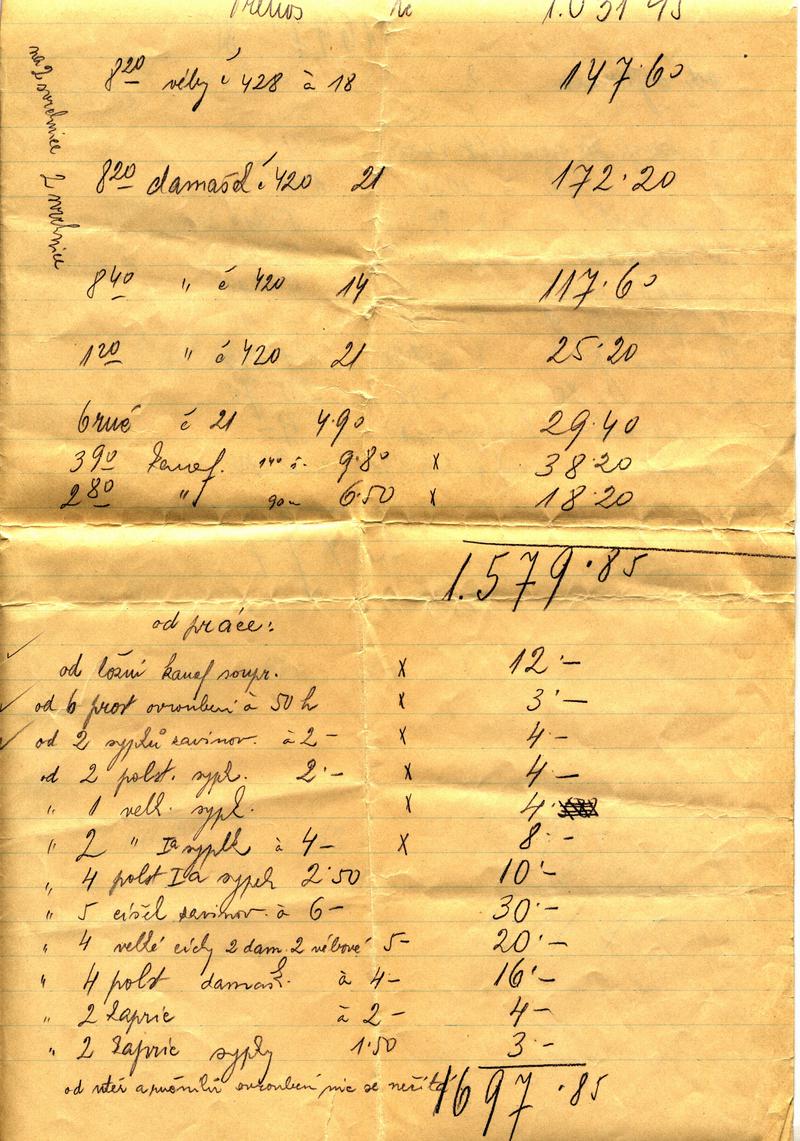 8 20 véby č 428 à 18 147·60
na 2 svrchnice 2 svrchnice
8 20 damašk č 420 21 172·20
8 40 " č 420 14 117·60
1 20 " č 420 21 25·20
č 21 4·90 29·40
3 90 kanaf. 140 š. 9·80 x 38·20
2 80 " 90 6·50 x 18·20
1.579·85
od práce:
od ložní kanaf soupr. x 12·—
od 6 prost ovroubení à 50 h x 3·—
od 2 sypků zavinov. à 2- x 4·-
od 2 polst. sypk. 2·- x 4·—
" 1 velk. sypk. x 4·
" 2 " Ia sypk à 4- x 8·-
" 4 polst Ia sypek 2·50 10·-
" 5 zavinov. à 6- 30·-
" 4 velké cíchy 2 dam. 2 vébové 5- 20·-
" 4 polst damašk. à 4- 16·-
" 2 kapric à 2- 4-
" 2 kapric sypky 1·50 3·-
od utěr a ovroubení nic se nečítá 1697·85